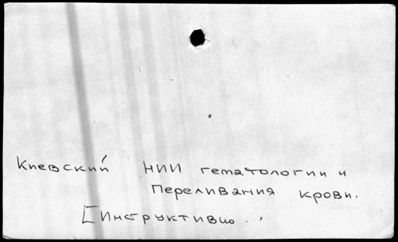 Киевский НИИ гематологии и
переливания крови.
[Инструктивно..